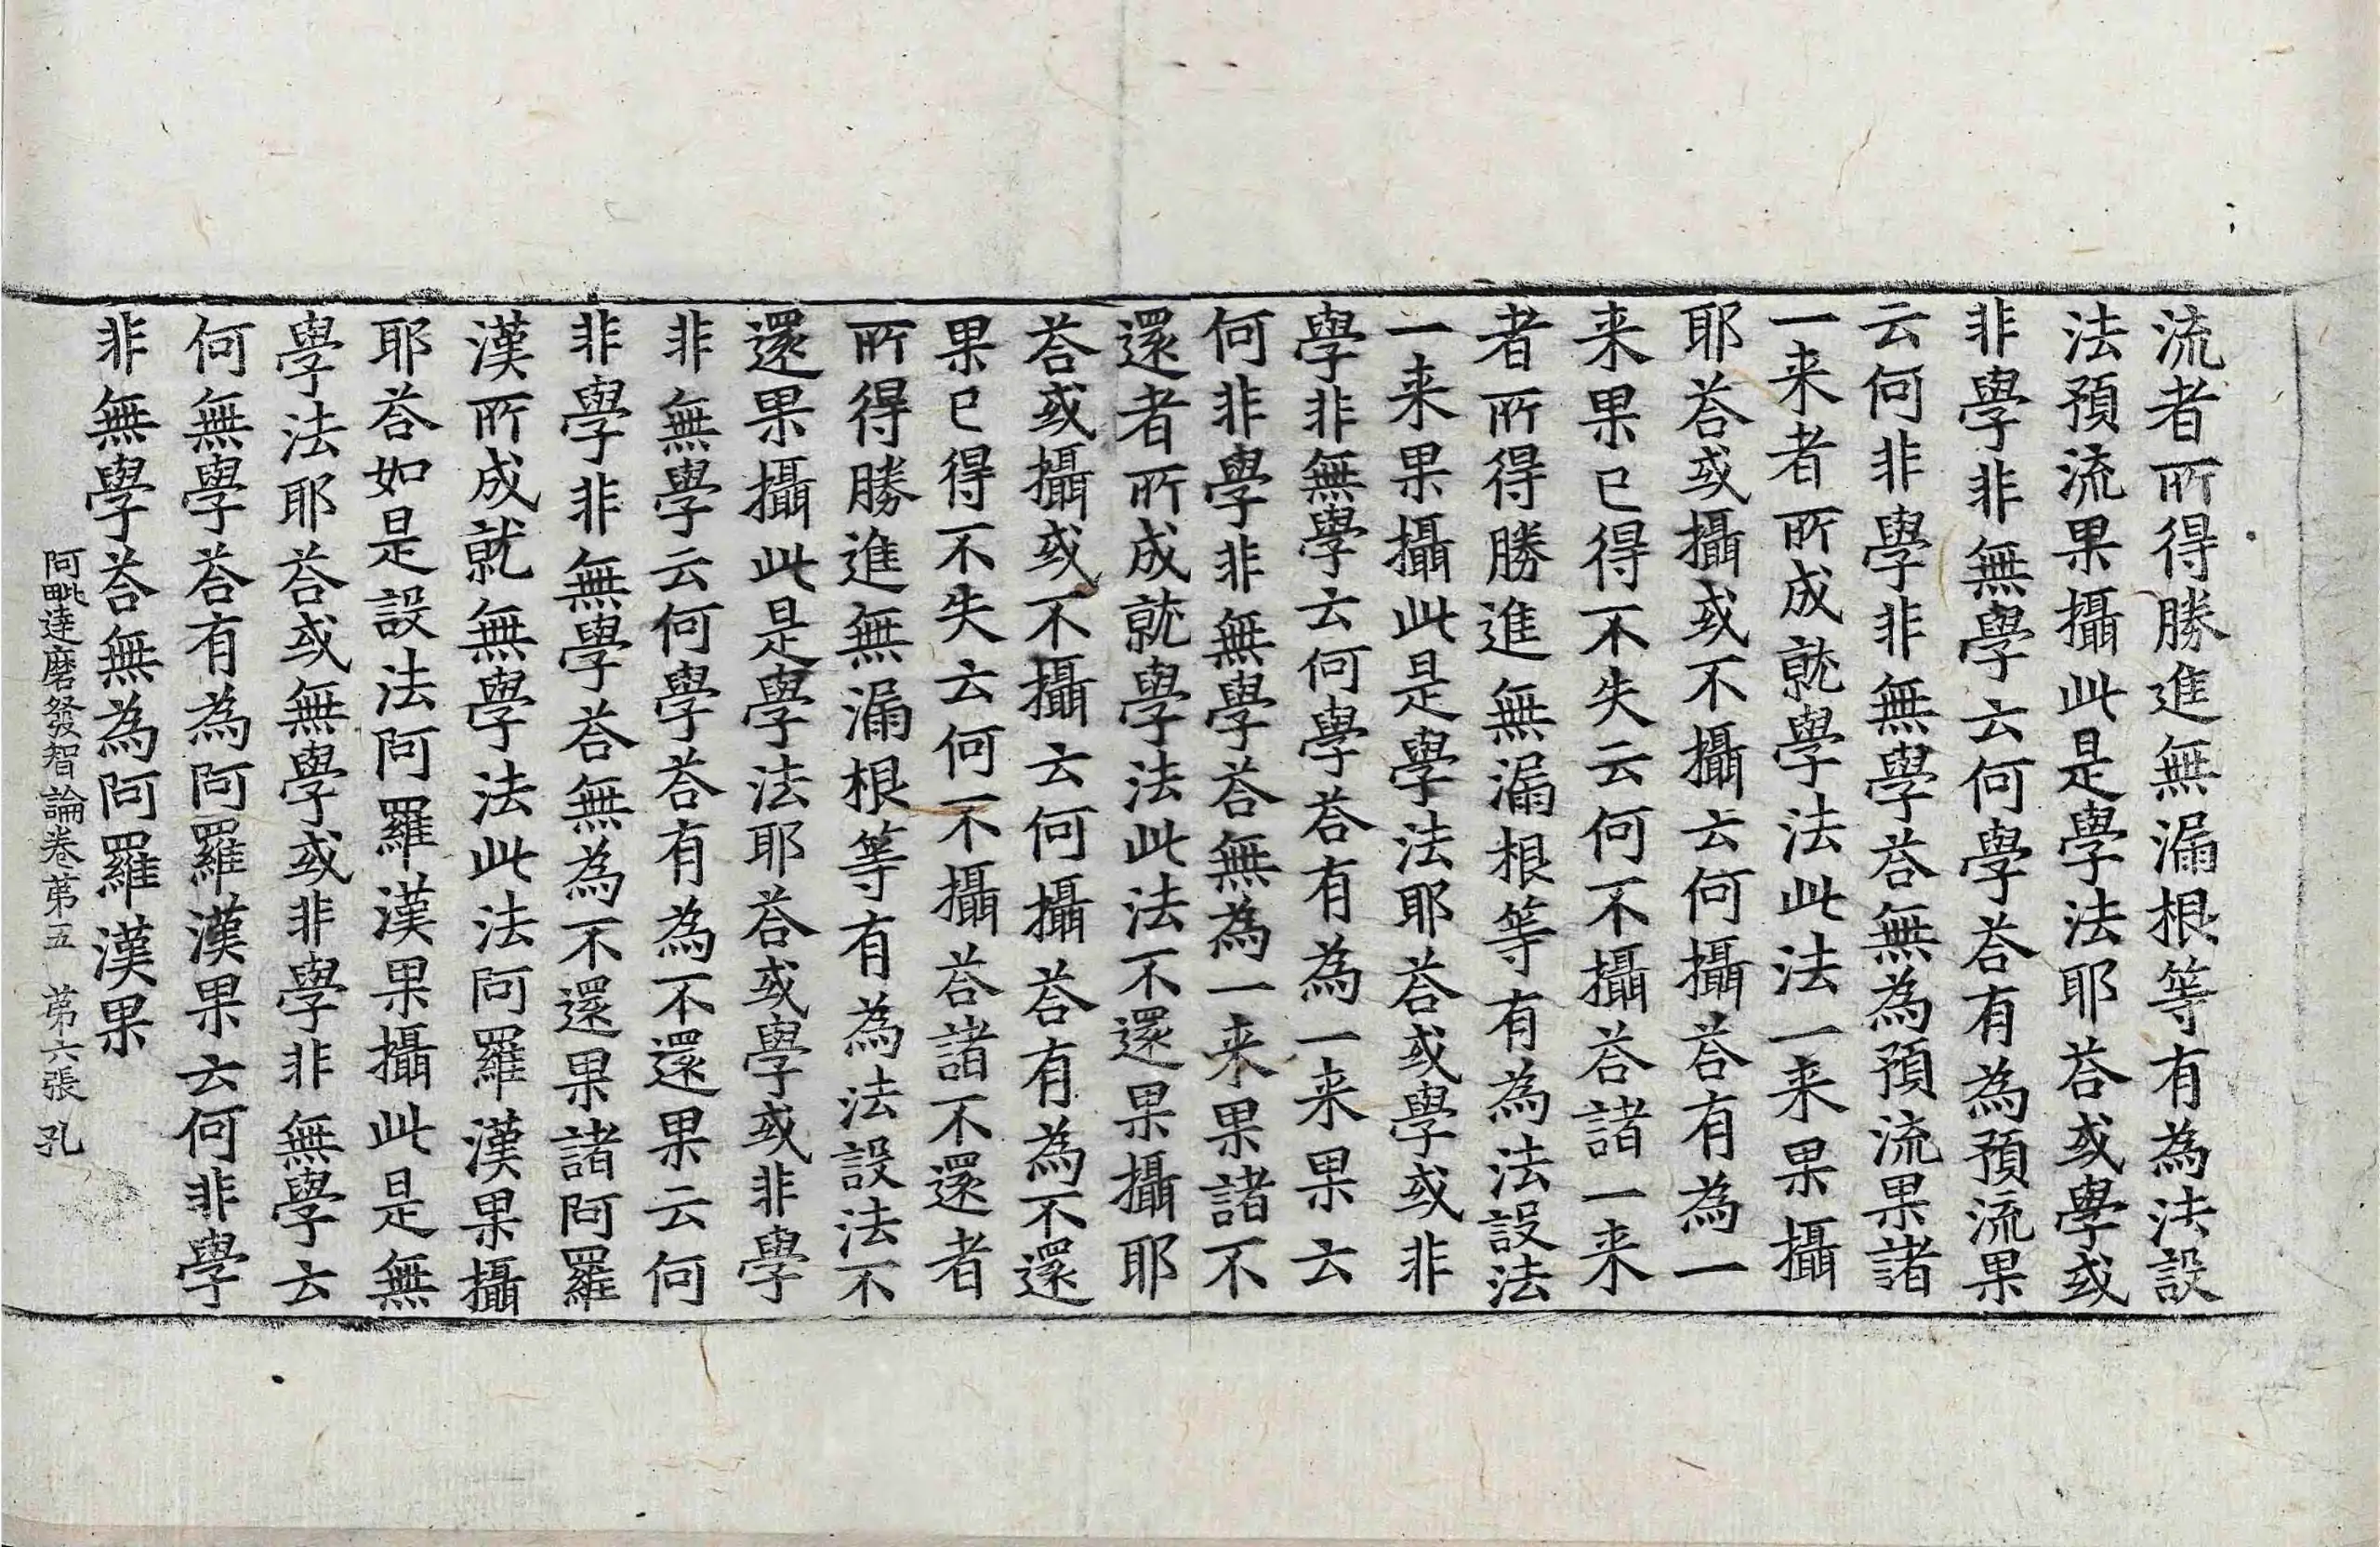 流者所得勝進無漏根等有為法設
法預流果攝此是學法耶荅或學或
非學非無學云何學荅有為預流果
云何非學非無學荅無為預流果諸
一来者所成就學法此法一来果攝
耶荅或攝或不攝云何攝荅有為一
来果已得不失云何不攝荅諸一来
者所得勝進無漏根等有為法設法
一来果攝此是學法耶荅或學或非
學非無學云何學荅有為一来果云
何非學非無學荅無為一来果諸不
還者所成就學法此法不還果攝耶
荅或攝或不攝云何攝荅有為不還
果已得不失云何不攝荅諸不還者
所得勝進無漏根等有為法設法不
還果攝此是學法耶荅或學或非學
非無學云何學荅有為不還果云何
非學非無學荅無為不還果諸阿羅
漢所成就無學法此法阿羅漢果攝
耶荅如是設法阿羅漢果攝此是無
學法耶荅或無學或非學非無學云
何無學荅有為阿羅漢果云何非學
非無學荅無為阿羅漢果
阿毗達磨發智論卷第五　第六張　孔